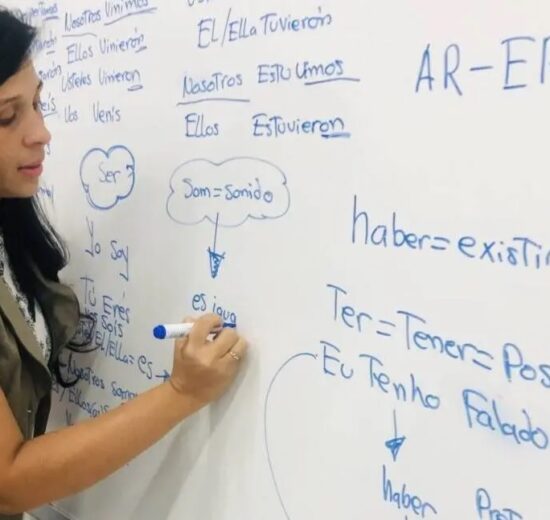 Nosotros Vinimos
Ellos Vinieron
Ustedes Vinieron
Vos Venis
El/Ella Tuvieron
Nosotros Estuvimos
Ellos Estuvieron
AR-ER
Ser
Som=Sonido
Yo Soy
Tú Eres
Vos Sois
El/Ella=es
Nosotros Somos
es igua
haber=existir
Ter=Tener=Pos
Eu Tenho Falado
haber